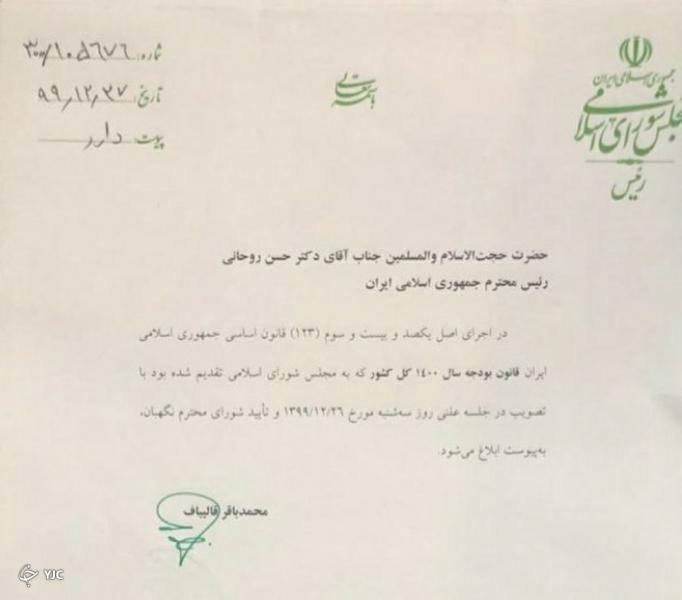 جمهوری اسلامی ایران
مجلس شورای اسلامی
رئیس
باسمه تعالی
شماره: ۳۰۰/۱۰۵۶۷۶
تاریخ: ۹۹٫۱۲٫۲۷
پیوست: دارد
حضرت حجت‌الاسلام والمسلمین جناب آقای دکتر حسن روحانی
رئیس محترم جمهوری اسلامی ایران
در اجرای اصل یکصد و بیست و سوم (۱۲۳) قانون اساسی جمهوری اسلامی
ایران قانون بودجه سال ۱۴۰۰ کل کشور که به مجلس شورای اسلامی تقدیم شده بود با
تصویب در جلسه علنی روز سه‌شنبه مورخ ۱۳۹۹/۱۲/۲۶ و تأیید شورای محترم نگهبان،
به‌پیوست ابلاغ می‌شود.
محمدباقر قالیباف
YJC